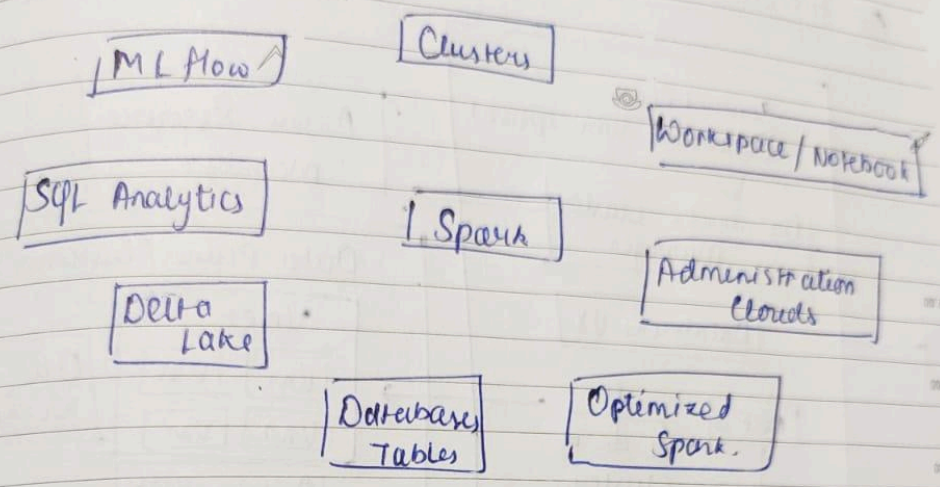 ML flow
Clusters
Workspace / Notebook
SQL Analytics
Spark
Administration
Clouds
Delta
Lake
Databases
Tables
Optimized
Spark.